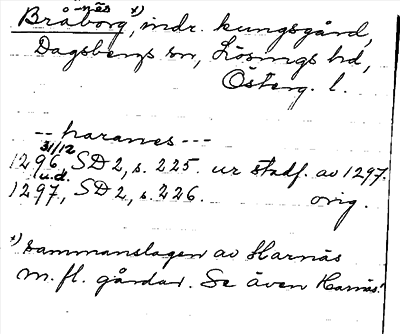 Bråborg, ˣ⁾ indr. kungsgård,
näs
Dagsbergs sn, Lösings hd,
Österg. l.
-- haranes ---
31/12
1296, SD 2, s. 225. ur stadf. av 1297.
u.d.
1297, SD 2, s. 226. orig.
ˣ⁾ sammanslagen av Harnäs
m. fl. gårdar. Se även Harnäs!